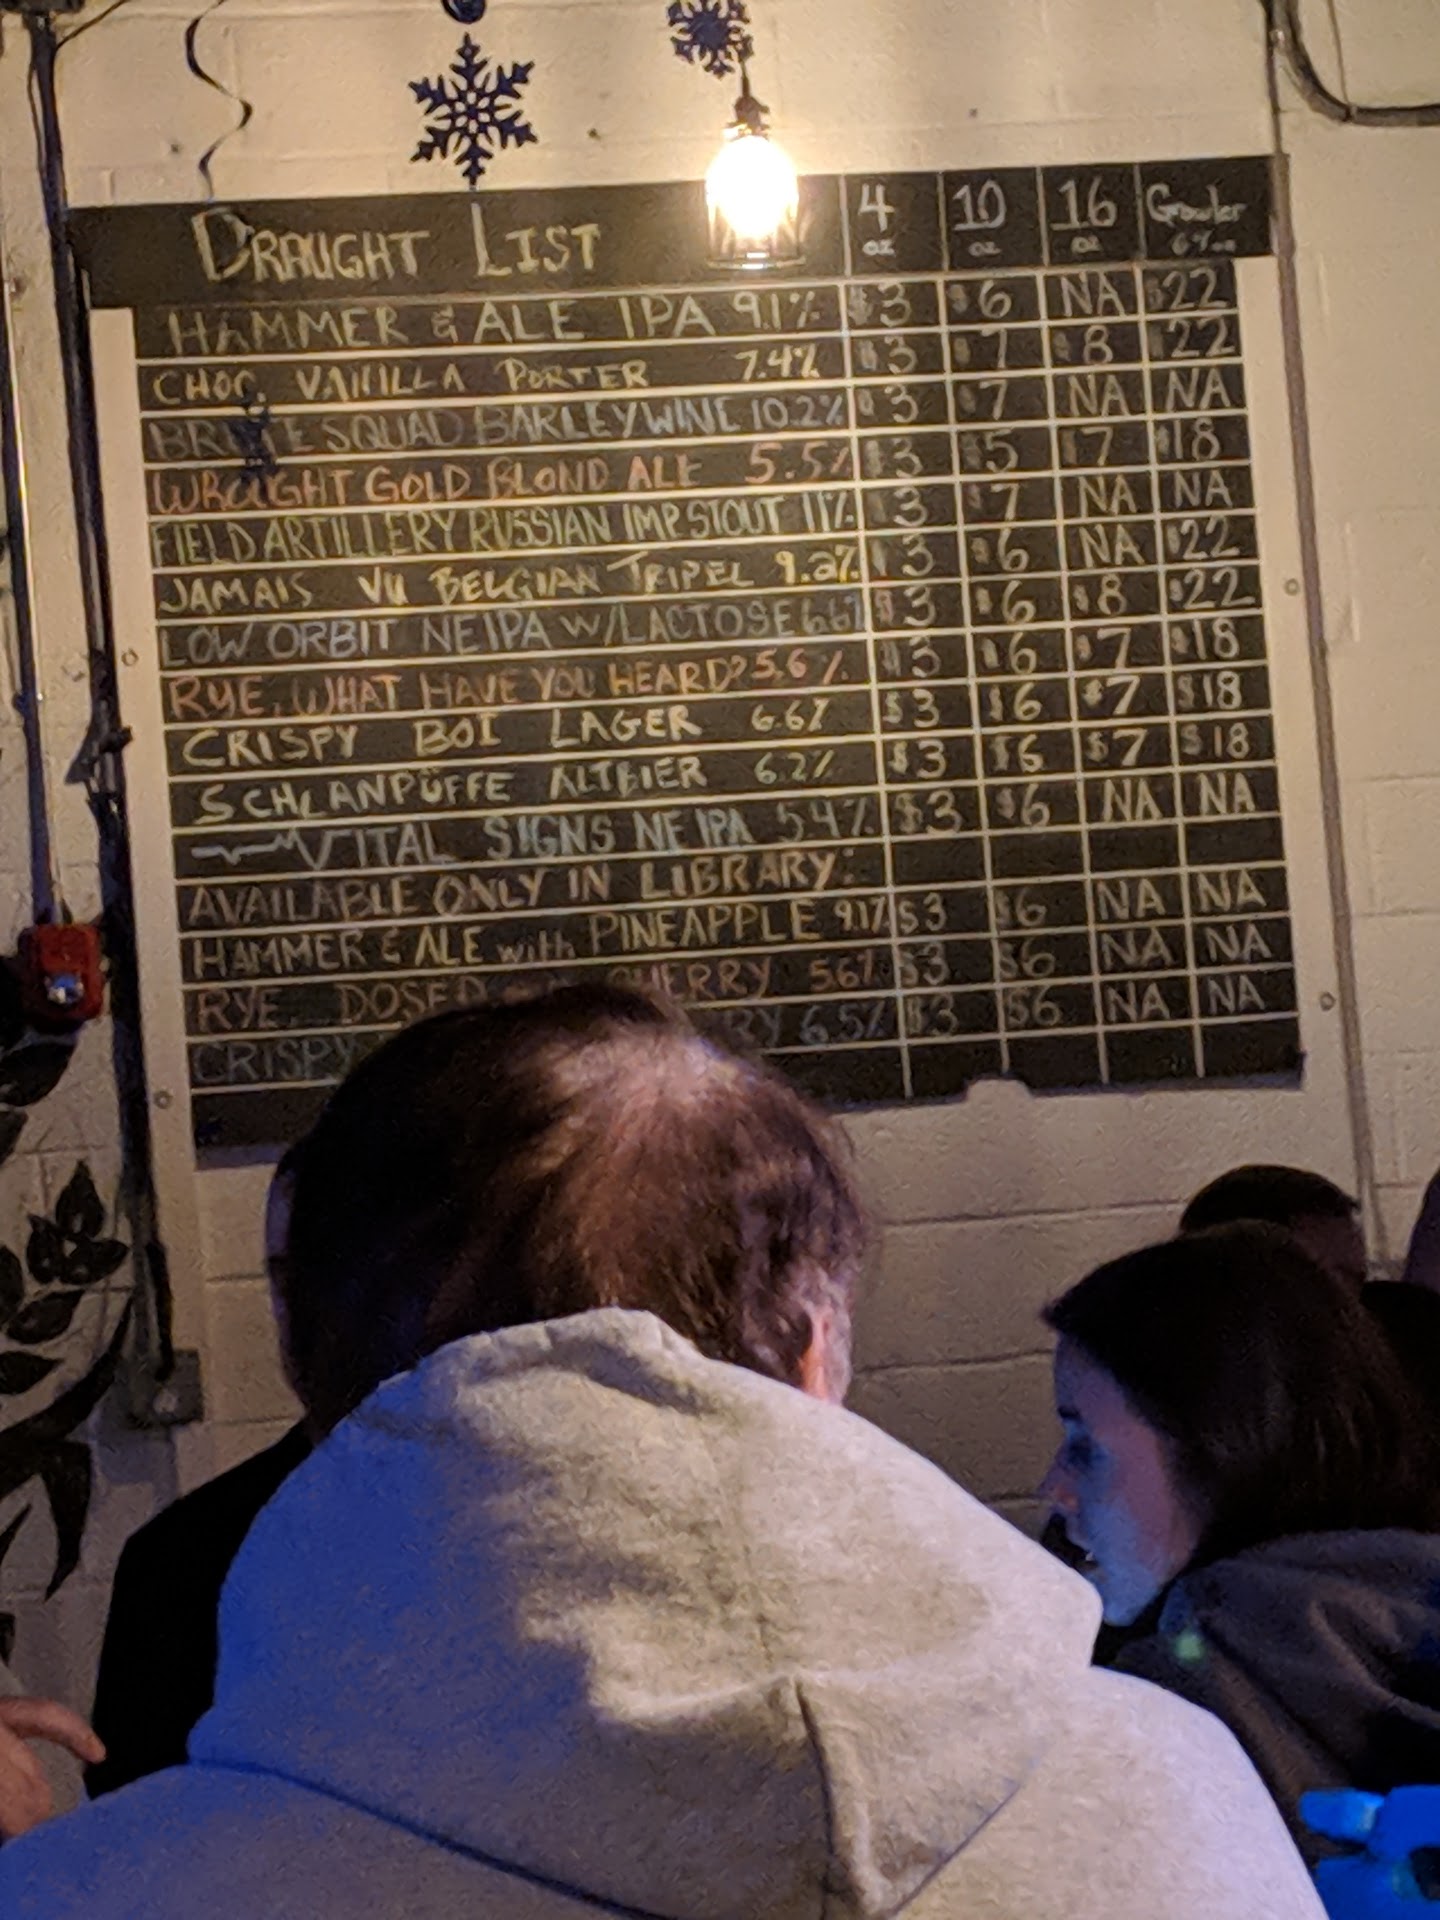 DRAUGHT LIST 4 oz 10 oz 16 oz Growler
HAMMER & ALE IPA 9.1% $3 $6 NA $22
CHOC. VANILLA PORTER 7.4% $3 $7 $8 $22
BRUTE SQUAD BARLEYWINE 10.2% $3 $7 NA NA
WROUGHT GOLD BLOND ALE 5.5% $3 $5 $7 $18
FIELD ARTILLERY RUSSIAN IMP. STOUT 11% $3 $7 NA NA
JAMAIS VU BELGIAN TRIPEL 9.2% $3 $6 NA $22
LOW ORBIT NEIPA W/LACTOSE $3 $6 $8 $22
RYE, WHAT HAVE YOU HEARD? 5.6% $3 $6 $7 $18
CRISPY BOI LAGER 6.6% $3 $6 $7 $18
SCHLANPÜFFE ALTBIER 6.2% $3 $6 $7 $18
VITAL SIGNS NE IPA 5.4% $3 $6 NA NA
AVAILABLE ONLY IN LIBRARY:
HAMMER & ALE with PINEAPPLE 9.1% $3 $6 NA NA
RYE DOSED CHERRY 5.6% $3 $6 NA NA
CRISPY 6.5% $3 $6 NA NA